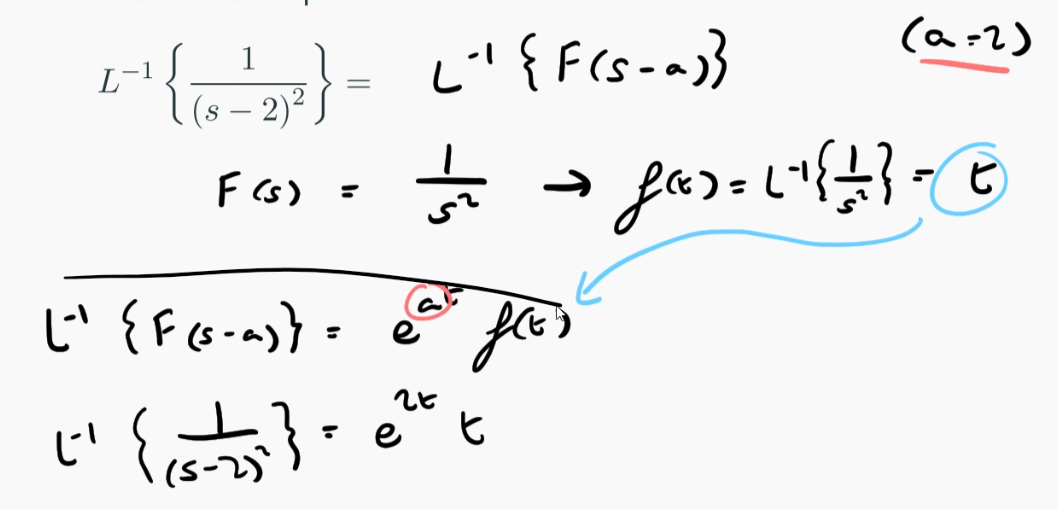 L⁻¹ { 1 / (s − 2)² } = L⁻¹ { F(s-a)} (a=2)
F(s) = 1/s² → f(t) = L⁻¹{1/s²} = t
L⁻¹ {F(s-a)} = e^{at} f(t)
L⁻¹ { 1/(s-2)² } = e^{2t} t